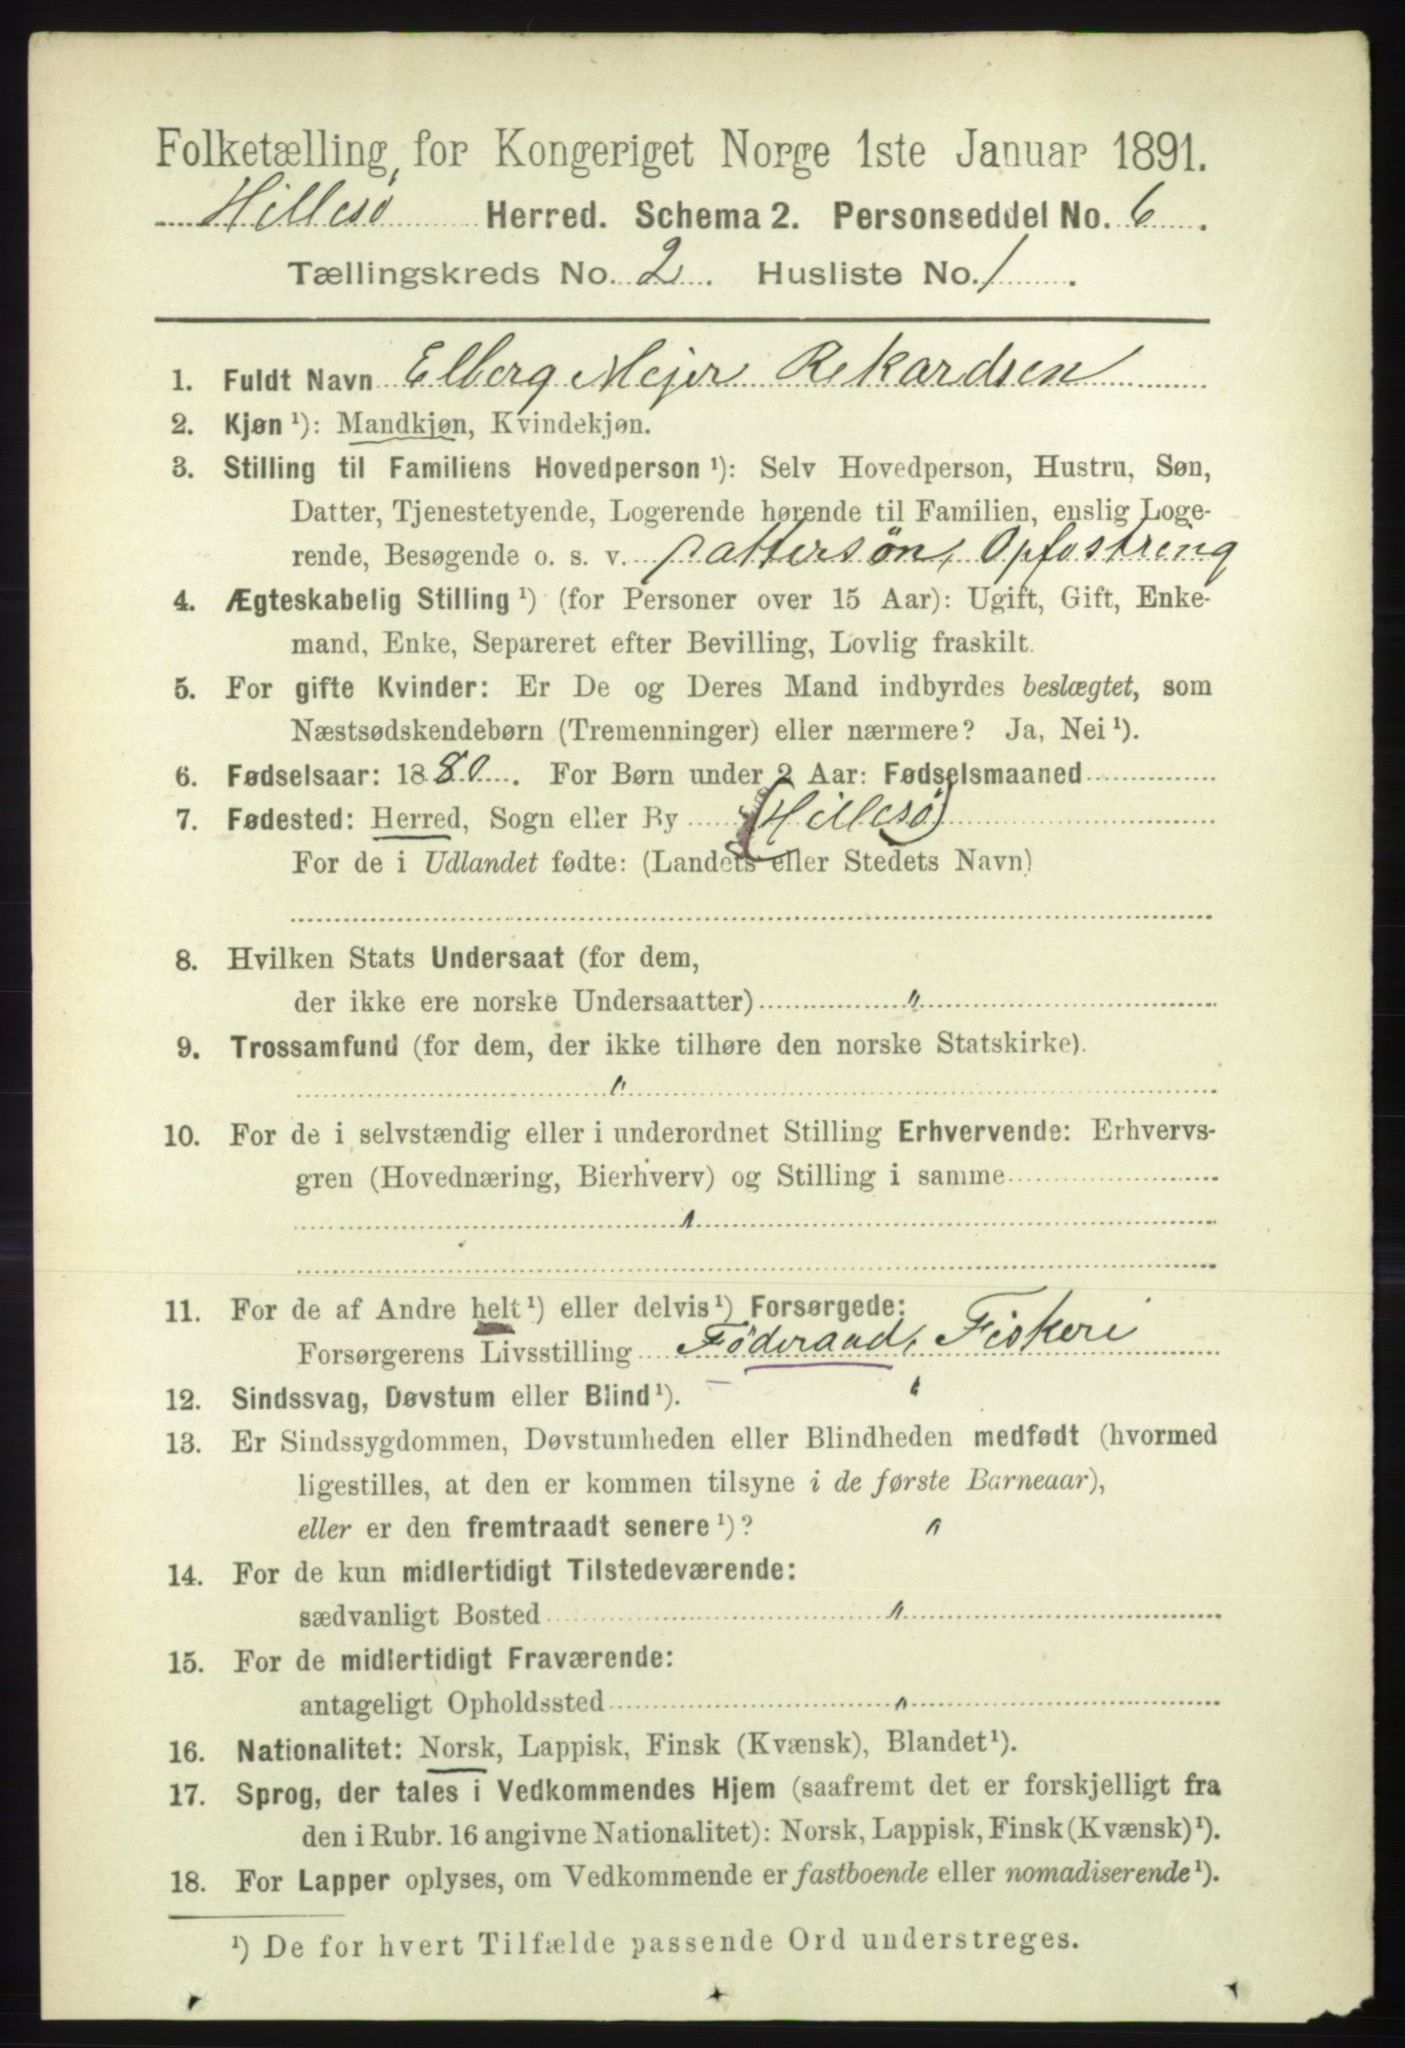 Folketælling for Kongeriget Norge 1ste Januar 1891.
Hillesø Herred. Schema 2. Personseddel No. 6.
Tællingskreds No. 2. Husliste No. 1.
1. Fuldt Navn Elberg Mejer Rekardsen
2. Kjøn ¹): Mandkjøn, Kvindekjøn.
3. Stilling til Familiens Hovedperson ¹): Selv Hovedperson, Hustru, Søn,
Datter, Tjenestetyende, Logerende hørende til Familien, enslig Loge-
rende, Besøgende o. s. v. Dattersøn, Opfostring
4. Ægteskabelig Stilling ¹) (for Personer over 15 Aar): Ugift, Gift, Enke-
mand, Enke, Separeret efter Bevilling, Lovlig fraskilt.
5. For gifte Kvinder: Er De og Deres Mand indbyrdes beslægtet, som
Næstsødskendebørn (Tremenninger) eller nærmere? Ja, Nei ¹).
6. Fødselsaar: 1880. For Børn under 2 Aar: Fødselsmaaned
7. Fødested: Herred, Sogn eller By (Hillesø)
For de i Udlandet fødte: (Landets eller Stedets Navn)
8. Hvilken Stats Undersaat (for dem,
der ikke ere norske Undersaatter) "
9. Trossamfund (for dem, der ikke tilhøre den norske Statskirke).
"
10. For de i selvstændig eller i underordnet Stilling Erhvervende: Erhvervs-
gren (Hovednæring, Bierhverv) og Stilling i samme
"
11. For de af Andre helt ¹) eller delvis ¹) Forsørgede:
Forsørgerens Livsstilling Föderaad, Fiskeri
12. Sindssvag, Døvstum eller Blind ¹). "
13. Er Sindssygdommen, Døvstumheden eller Blindheden medfødt (hvormed
ligestilles, at den er kommen tilsyne i de første Barneaar),
eller er den fremtraadt senere ¹)? "
14. For de kun midlertidigt Tilstedeværende:
sædvanligt Bosted "
15. For de midlertidigt Fraværende:
antageligt Opholdssted "
16. Nationalitet: Norsk, Lappisk, Finsk (Kvænsk), Blandet ¹).
17. Sprog, der tales i Vedkommendes Hjem (saafremt det er forskjelligt fra
den i Rubr. 16 angivne Nationalitet): Norsk, Lappisk, Finsk (Kvænsk) ¹).
18. For Lapper oplyses, om Vedkommende er fastboende eller nomadiserende ¹).
¹) De for hvert Tilfælde passende Ord understreges.